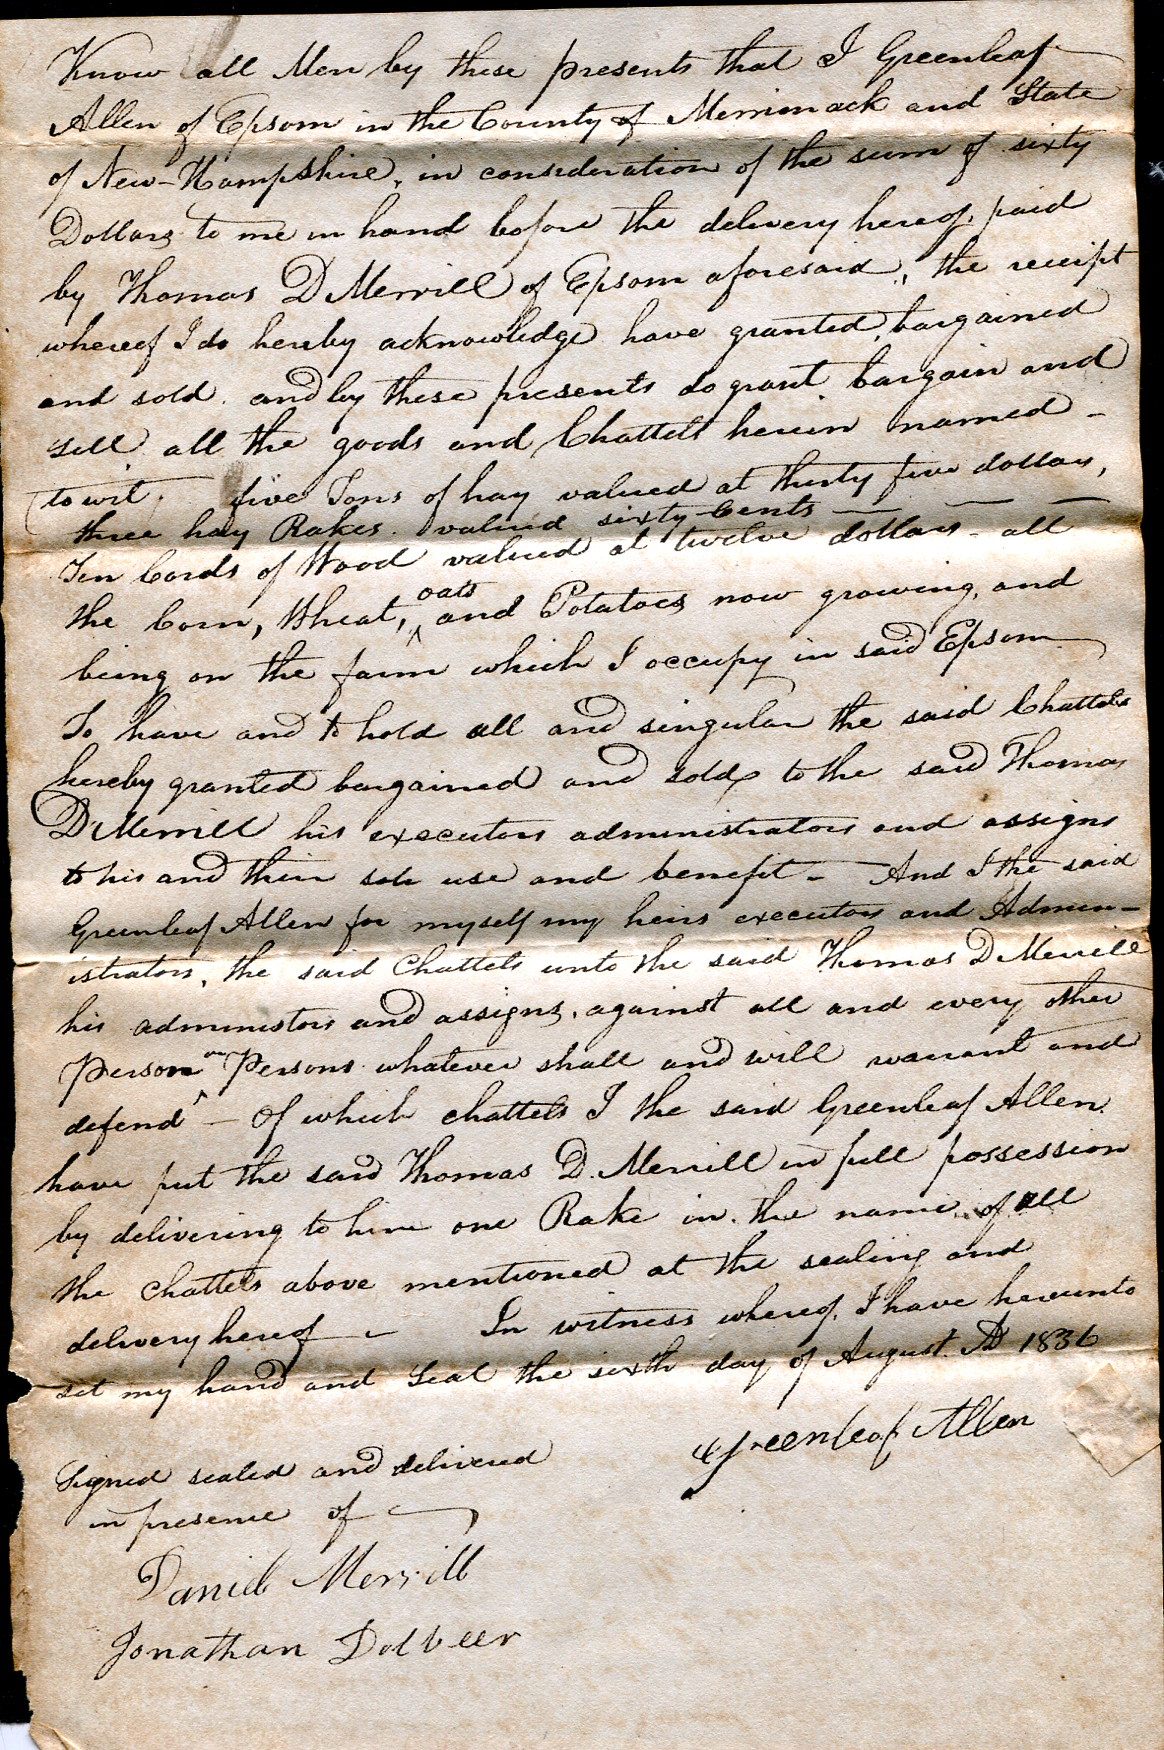 Know all Men by these presents that I Greenleaf
Allen of Epsom in the County of Merrimack and State
of New-Hampshire, in consideration of the sum of sixty
Dollars to me in hand before the delivery hereof, paid
by Thomas D Merrill of Epsom aforesaid, the receipt
whereof I do hereby acknowledge have granted, bargained
and sold and by these presents do grant bargain and
sell all the goods and Chattels herein named -
to wit. five Tons of hay valued at thirty five dollars,
three hay Rakes valued sixty Cents — — —
Ten Cords of Wood valued at twelve dollars - all
the Corn, Wheat, oats and Potatoes now growing, and
being on the farm which I occupy in said Epsom
To have and to hold all and singular the said Chattels
hereby granted bargained and sold to the said Thomas
D Merrill his executors administrators and assigns
to his and their sole use and benefit - And I the said
Greenleaf Allen for myself my heirs executors and Admin-
istrators, the said Chattels unto the said Thomas D Merrill
his administors and assigns, against all and every other
Person or Persons whatever shall and will warrant and
defend - Of which chattels I the said Greenleaf Allen
have put the said Thomas D. Merrill in full possession
by delivering to him one Rake in the name of all
the Chattels above mentioned at the sealing and
delivery hereof - In witness whereof, I have hereunto
set my hand and Seal the sixth day of August AD 1836
Greenleaf Allen
Signed sealed and delivered
in presence of —
Daniel Merrill
Jonathan Dolbeer